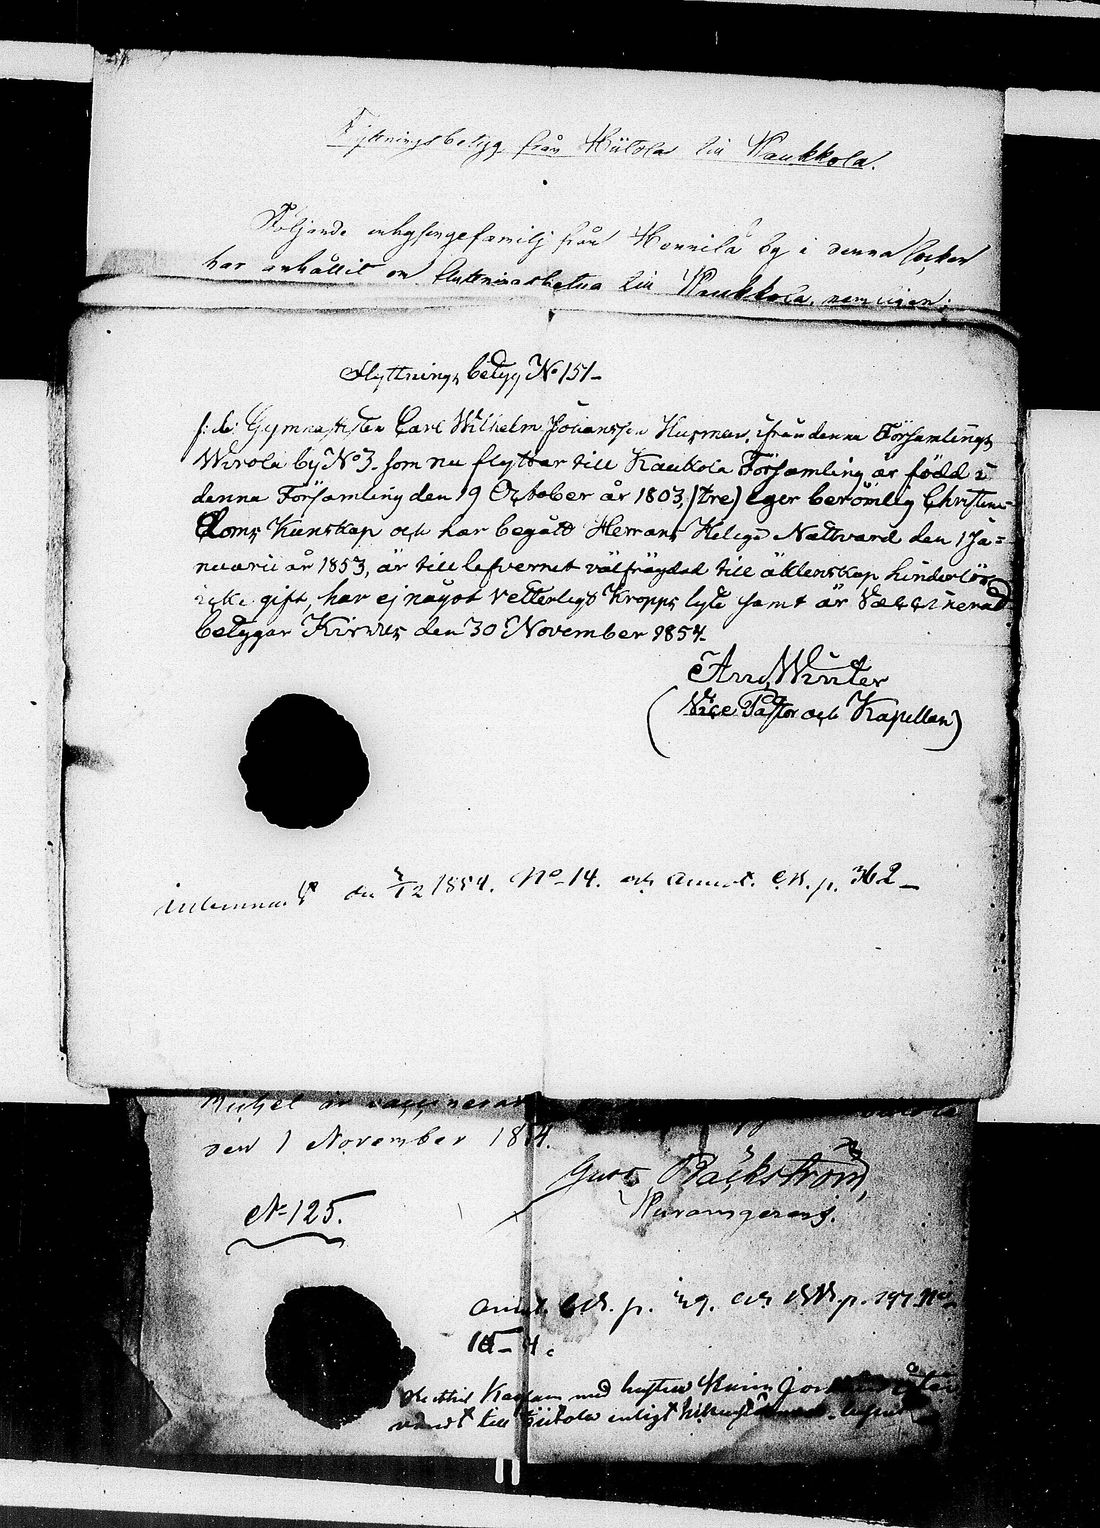 Flyttningsbetyg från Hiitola till Kaukkola.
Följande inhysingefamilj från Honnila by i denna Socken
har anhållit om flyttningsbetyg till Kaukkola, nemligen:
Flyttnings betyg No 151-
f: de Gymnastisten Carl Wilhelm Johansson Husman, ifrån denna Församlings
Wirola by No 3. som nu flyttar till Kaukola Församling är född i
denna Församling den 19 October år 1803, (tre) eger berömlig Christen-
Doms Kunskap och har begått Herrans Helige Nattvard den 1 Ja=
nuarii år 1853, är till lefvernet välfrägdad till äktenskap hinderlös
icke gift, har ej något vetterligt Kropps lyte samt är Vaccinerad
betygar Kirvus den 30 November 1854.
And. Winter
(Vice Pastor och Kapellan)
den /12 1854. No 14. och annot. C.K. p. 362-
Michel är vaccinerad
den 1 November 18
Gust. Bäckström,
No 125.
p. 29. och p. 197
med hustru
till Hiitola enligt